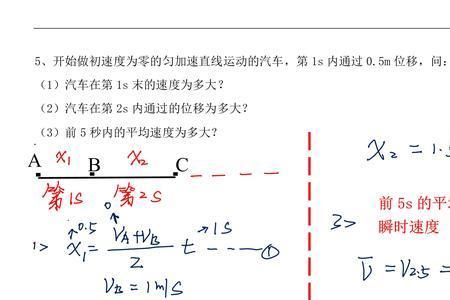 5、开始做初速度为零的匀加速直线运动的汽车，第 1s 内通过 0.5m 位移，问：
（1）汽车在第 1s 末的速度为多大？
（2）汽车在第 2s 内通过的位移为多大？
（3）前 5 秒内的平均速度为多大？
A x₁ B x₂ C
第1s 第2s
1> x₁ = (V_A + V_B)/2 t ---- ①
0.5 0 1s
V_B = 1m/s
x₂ = 1.5
前 5s 的平
3> 瞬时速度
V̅ = V2.5 =